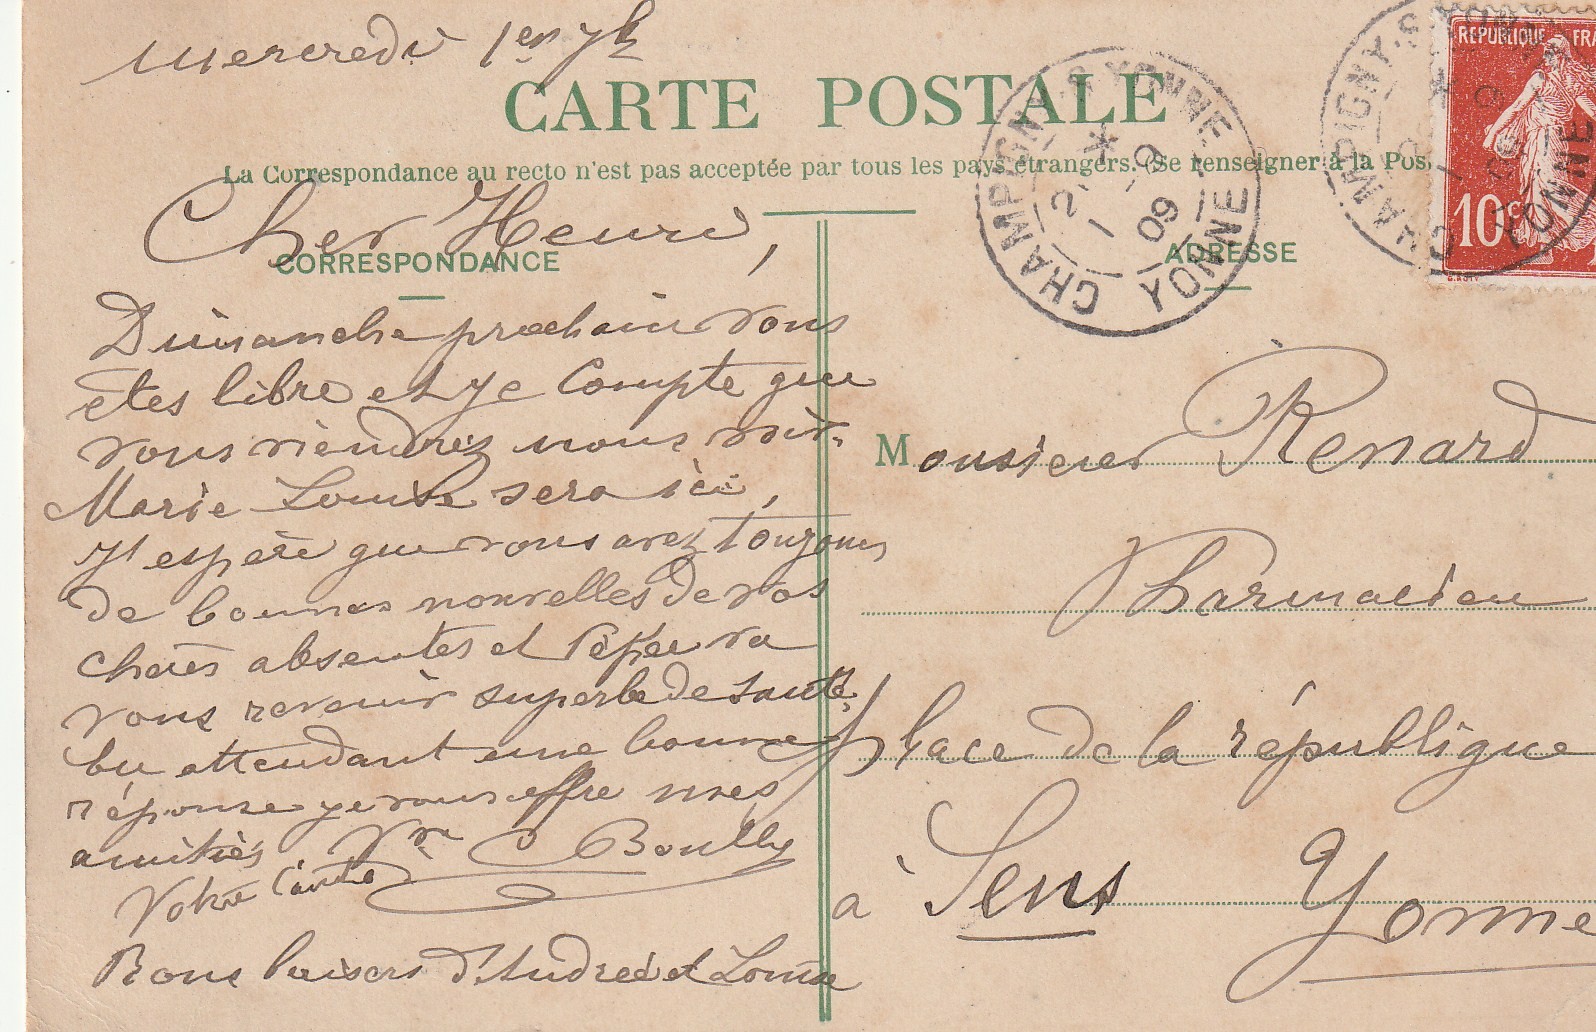 Mercredi 1er 7b
CARTE POSTALE
La Correspondance au recto n'est pas acceptée par tous les pays étrangers. (Se renseigner à la Pos
CORRESPONDANCE
Cher Henri,
Dimanche prochain vous
êtes libre et je compte que
vous viendrez nous voir.
Marie Louise sera ici,
J'espère que vous avez toujours
de bonnes nouvelles de vos
chères absentes et va
vous revenir superbe de santé,
En attendant une bonne
réponse je vous offre mes
amitiés. Boully
Votre
Bons baisers d'Andrée et Louise
ADRESSE
Monsieur Renard
Pharmacien
place de la république
à Sens Yonne
CHAMPIGNY-S-YONNE
2 * 9
1 09
YONNE
CHAMPIGNY-S-YONNE
YONNE
REPUBLIQUE FRA
10c